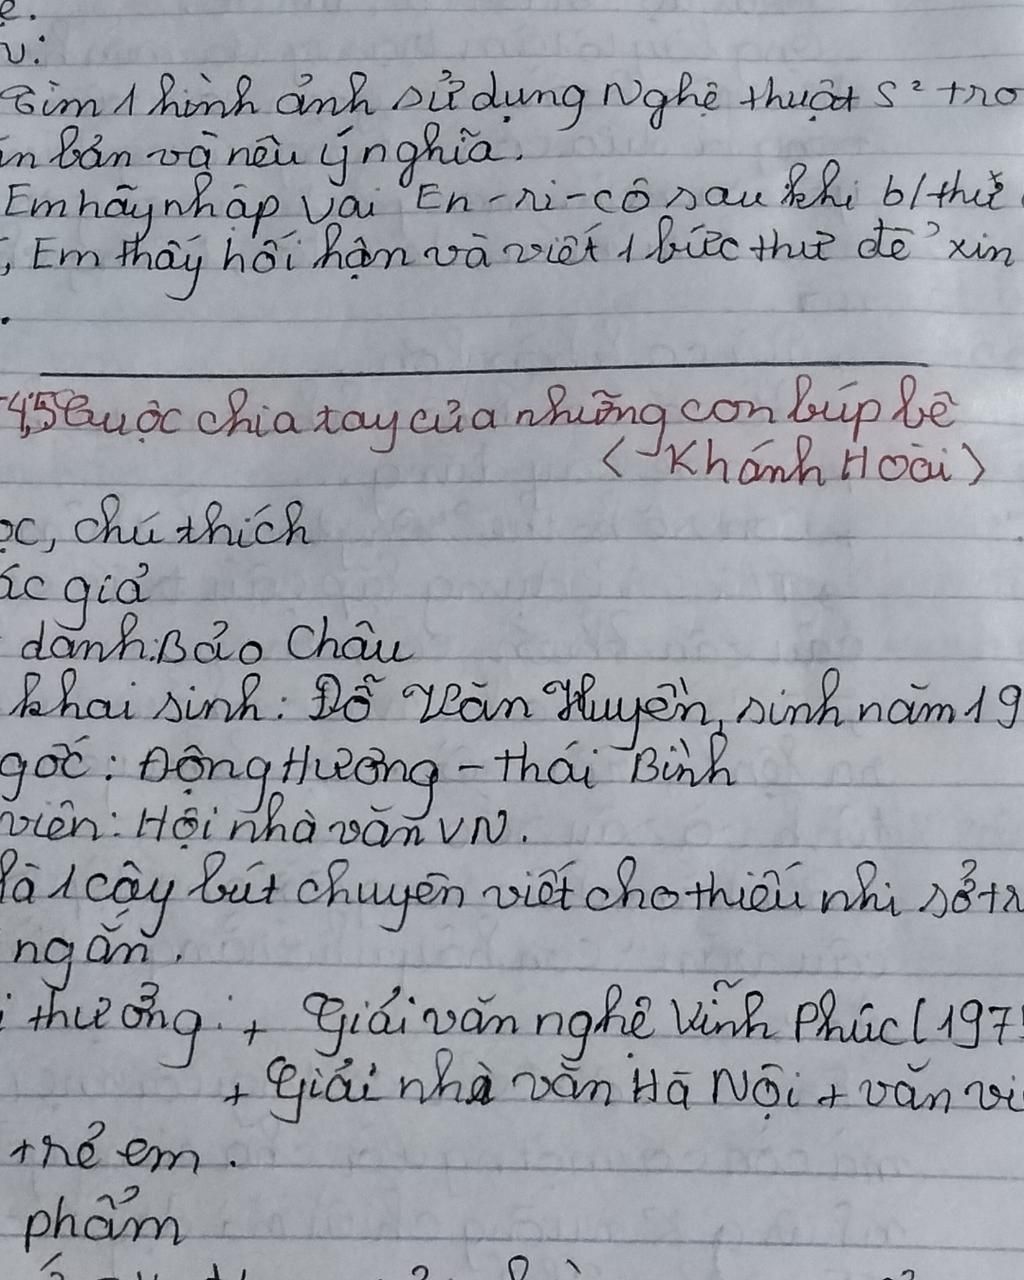 e.
v:
Tìm 1 hình ảnh sử dụng Nghệ thuật S² tro
ăn bản và nêu ý nghĩa.
Em hãy nhập vai En-ri-cô sau khi b/thư
, Em thấy hối hận và viết 1 bức thư để xin
.
4,5 Cuộc chia tay của những con búp bê
(-Khánh Hoài)
ọc, chú thích
ác giả
danh: Bảo Châu
khai sinh: Đỗ Văn Huyền, sinh năm 19
gốc: Đông Hương - thái Bình
viên: Hội nhà văn VN.
là 1 cây bút chuyên viết cho thiếu nhi sở tr
ngắn.
i thưởng: + Giải văn nghệ Vĩnh Phúc (197
+ Giải nhà văn Hà Nội + văn vi
trẻ em.
phẩm